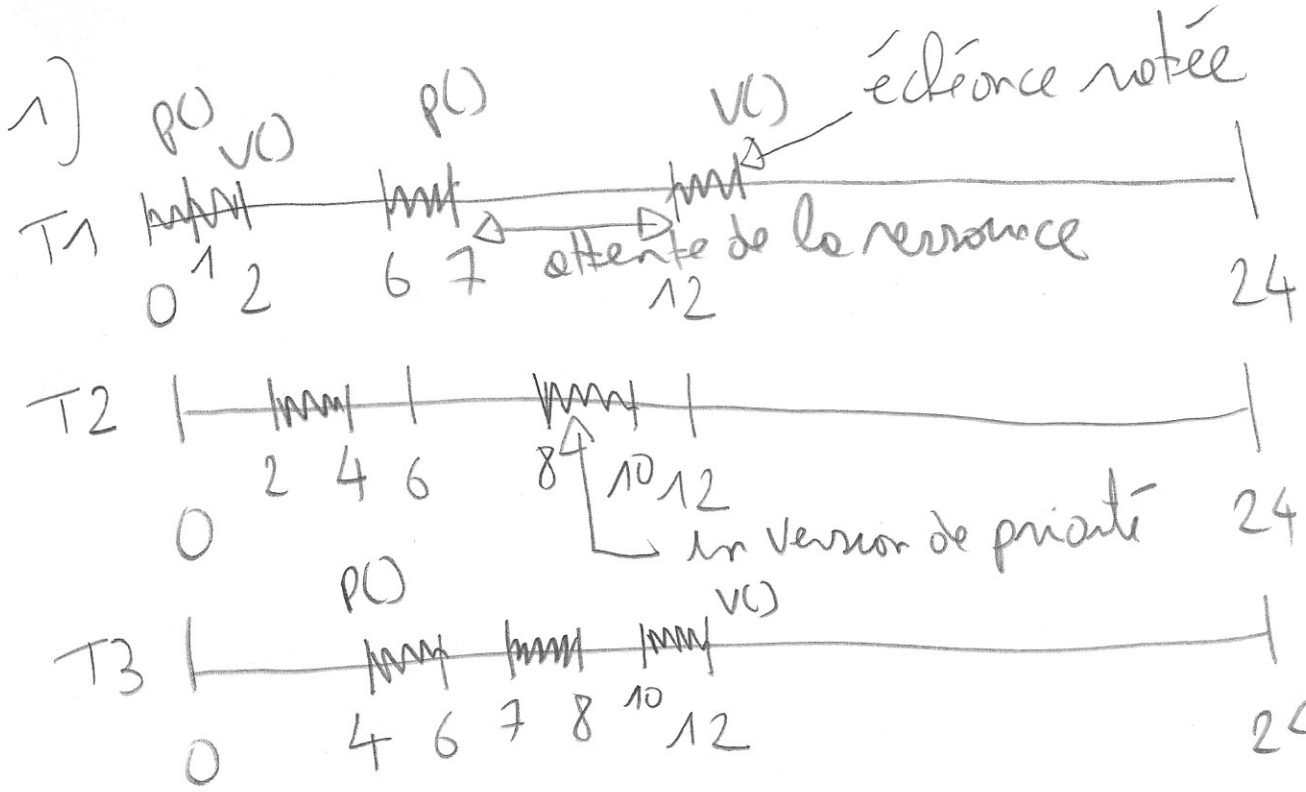 1)
p() V() p() V() échéance ratée
T1
0 1 2 6 7 attente de la ressource 12 24
T2
0 2 4 6 8 10 12 24
inversion de priorité
p() V()
T3
0 4 6 7 8 10 12 24